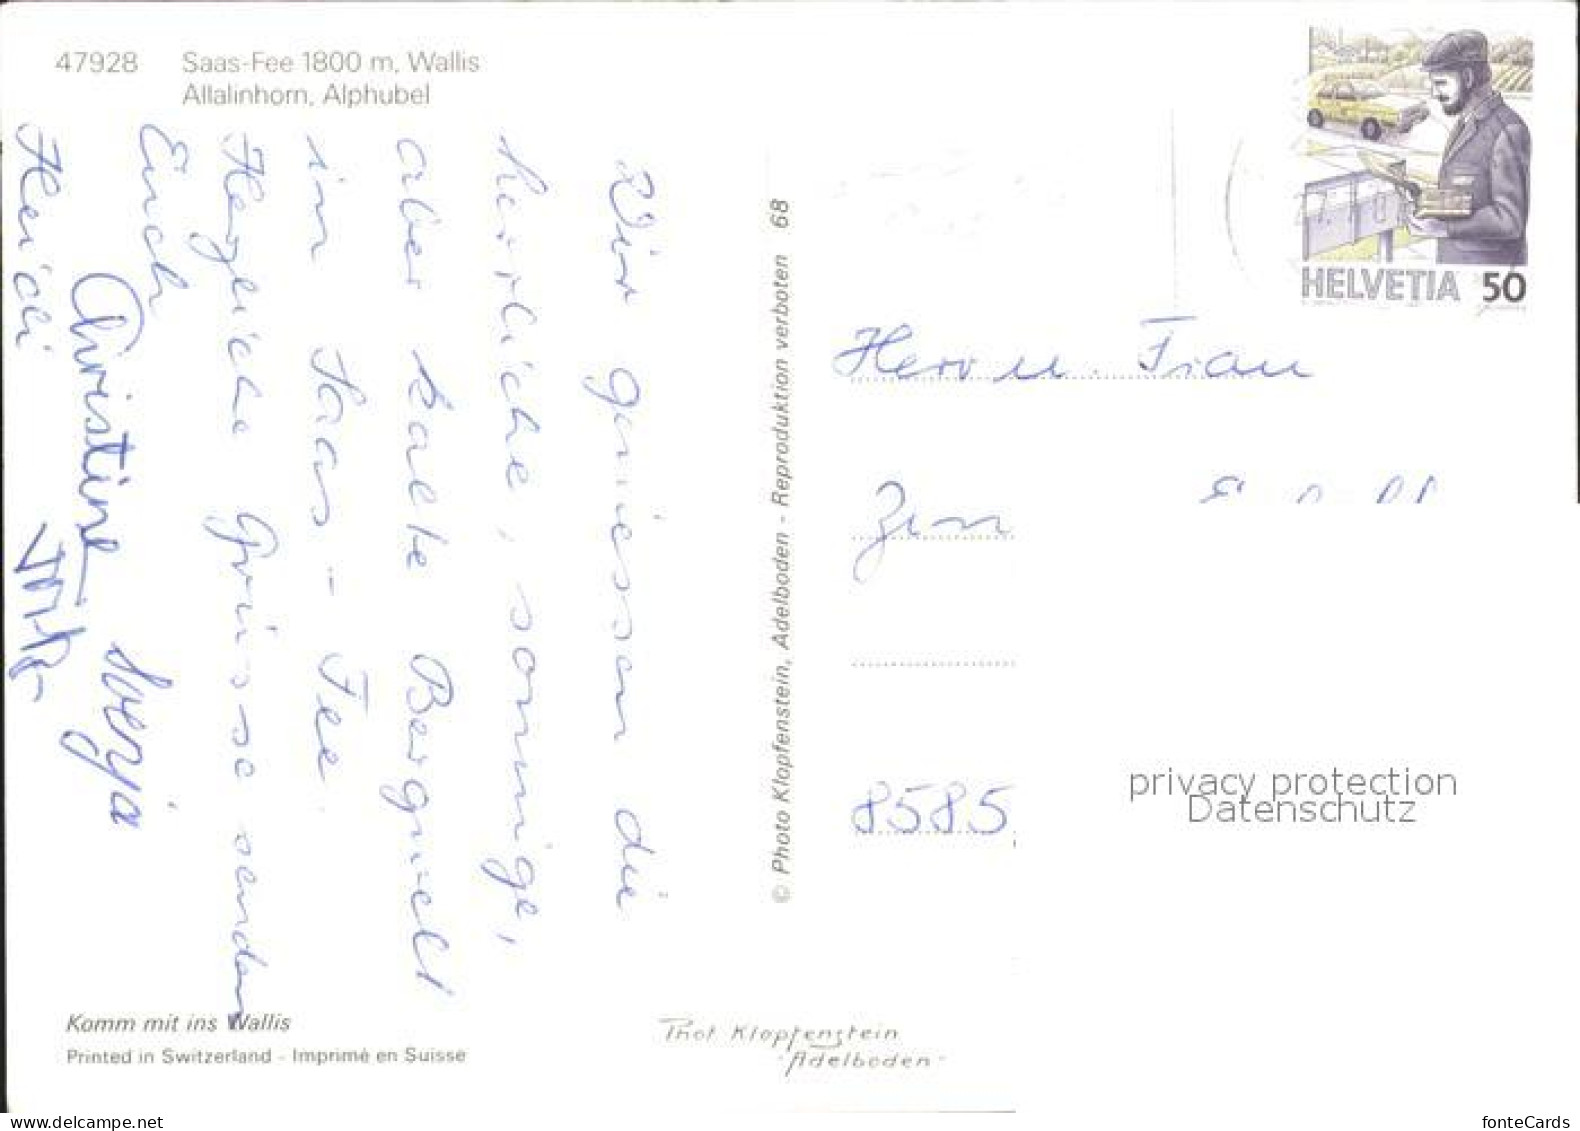 47928 Saas-Fee 1800 m, Wallis
Allalinhorn, Alphubel
Wir geniessen die
herrliche, sonnige,
aber kalte Bergwelt
in Saas-Fee.
Herzliche Grüsse senden
Euch
Christine Svenja
Heidi
© Photo Klopfenstein, Adelboden - Reproduktion verboten 68
HELVETIA 50
Herr u. Frau
8585
privacy protection
Datenschutz
Komm mit ins Wallis
Printed in Switzerland - Imprimé en Suisse
Phot Klopfenstein
Adelboden
delcampe.net
fonteCards